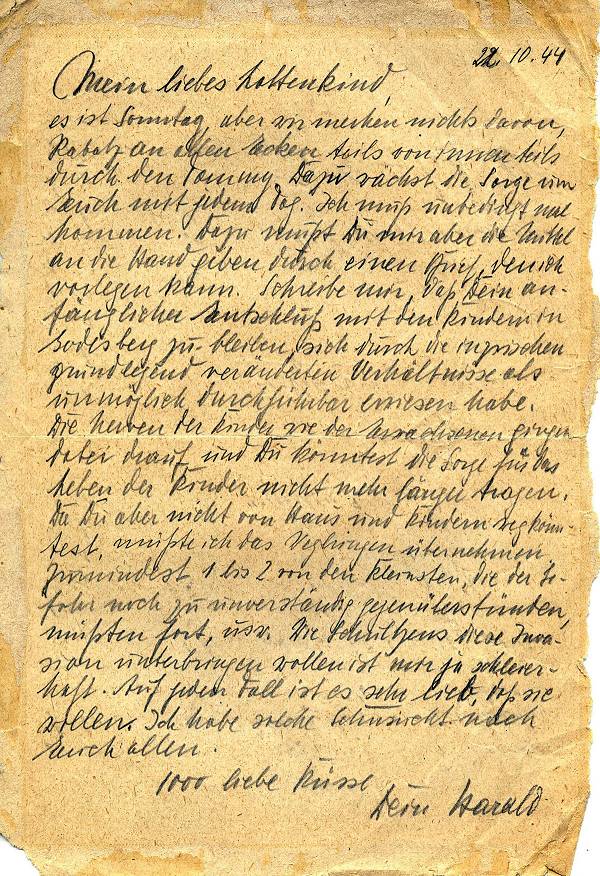 22.10.44
Mein liebes Lottenkind,
es ist Sonntag, aber wir merken nichts davon,
Rabatz an allen Ecken teils von innen teils
durch den Tommy. Dazu wächst die Sorge um
Euch mit jedem Tag. Ich muß unbedingt mal
kommen. Dazu mußt Du mir aber die Mittel
an die Hand geben durch einen Brief, den ich
vorlegen kann. Schreibe mir, daß Dein an-
fänglicher Entschluß mit den Kindern in
Godesberg zu bleiben, sich durch die inzwischen
grundlegend veränderten Verhältnisse als
unmöglich durchführbar erwiesen habe.
Die Nerven der Kinder wie der Erwachsenen gingen
dabei drauf und Du könntest die Sorge für das
Leben der Kinder nicht mehr länger tragen.
Da Du aber nicht von Haus und Kindern weg könn-
test, müßte ich das Wegbringen übernehmen.
Zumindest 1 bis 2 von den Kleinsten, die der Ge-
fahr noch zu unverständig gegenüberstünden,
müßten fort, usw. Wie Schultzens diese Inva-
sion unterbringen wollen ist mir ja schleier-
haft. Auf jeden Fall ist es sehr lieb, daß sie
wollen. Ich habe solche Sehnsucht nach
Euch allen.
1000 liebe Küsse
Dein Harald